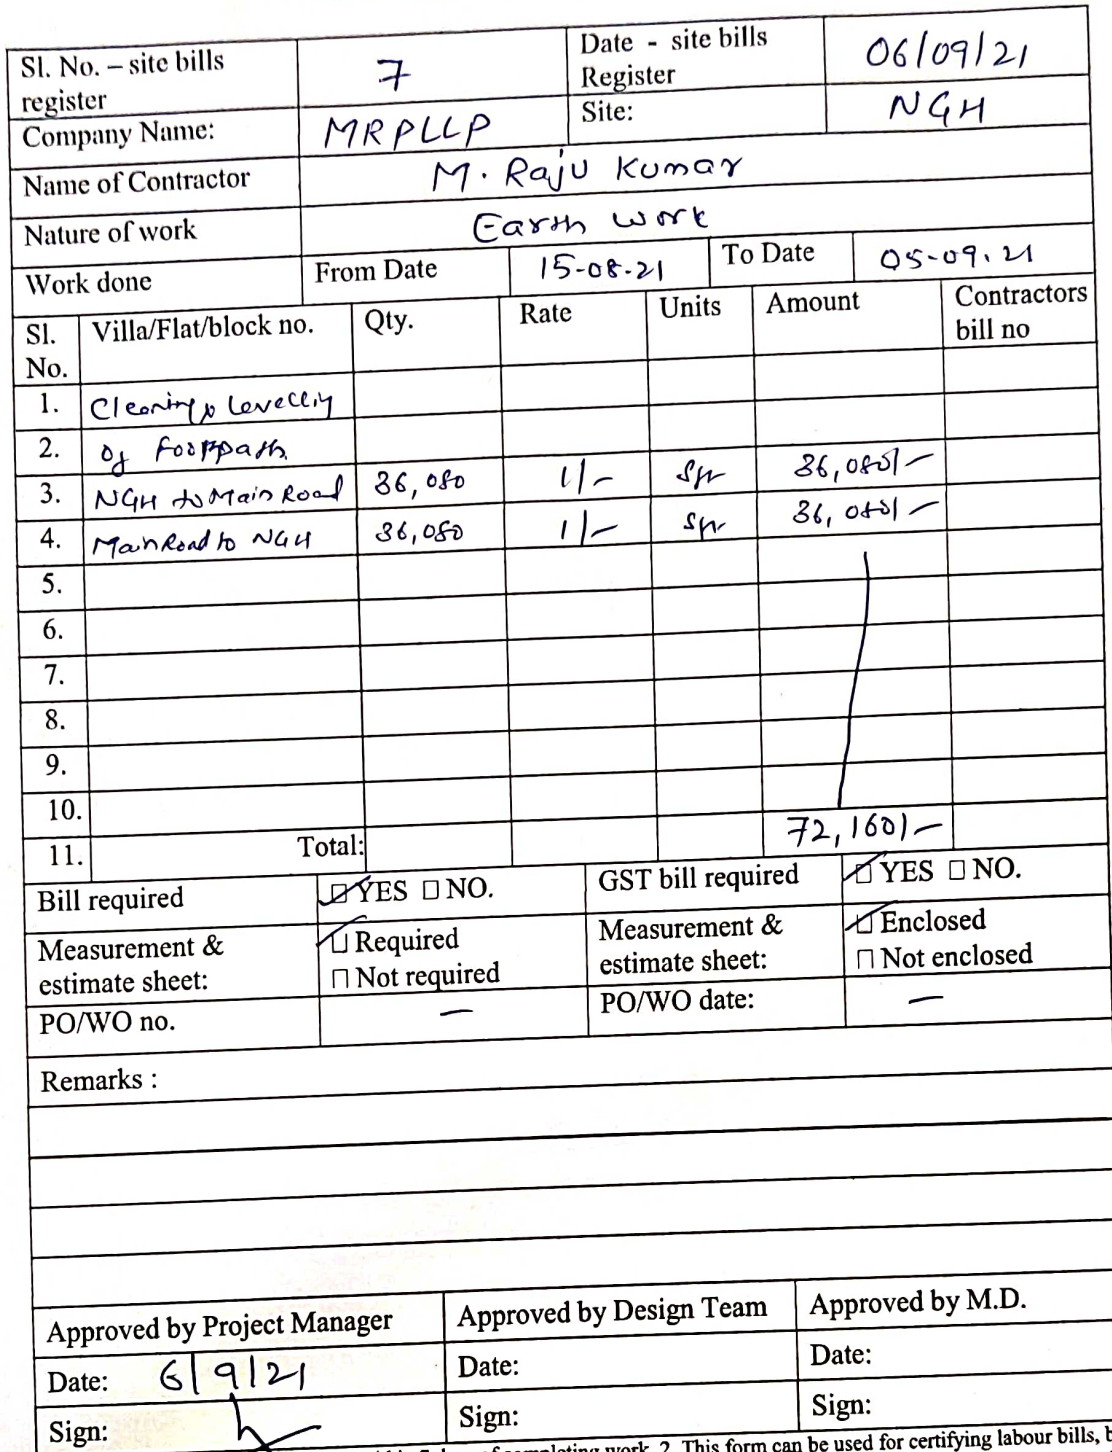 Sl. No. – site bills register 7 Date - site bills Register 06/09/21
Company Name: MRPLLP Site: NGH
Name of Contractor M. Raju Kumar
Nature of work Earth work
Work done From Date 15-08-21 To Date 05-09.21
Sl. No. Villa/Flat/block no. Qty. Rate Units Amount Contractors bill no
1. Cleaning & Levelliy
2. of Footpath
3. NGH to Main Road 36,080 1/- Sft 36,080/-
4. Main Road to NGH 36,080 1/- Sft 36,080/-
5.
6.
7.
8.
9.
10.
11. Total: 72,160/-
Bill required ☑ YES ☐ NO. GST bill required ☑ YES ☐ NO.
Measurement & estimate sheet: ☑ Required Measurement & estimate sheet: ☑ Enclosed
☐ Not required ☐ Not enclosed
PO/WO no. – PO/WO date: –
Remarks :
Approved by Project Manager Approved by Design Team Approved by M.D.
Date: 6/9/21 Date: Date:
Sign: Sign: Sign:
of completing work. 2. This form can be used for certifying labour bills,